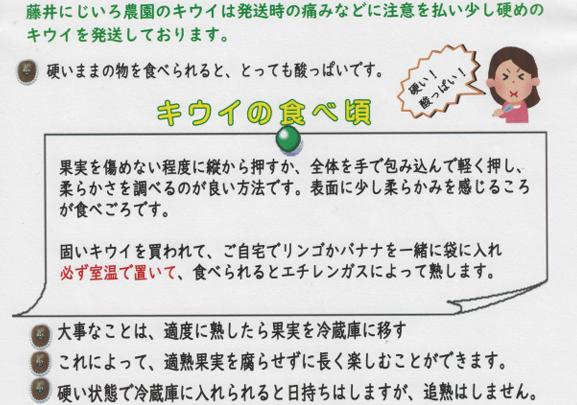 藤井にじいろ農園のキウイは発送時の痛みなどに注意を払い少し硬めの
キウイを発送しております。
硬いままの物を食べられると、とっても酸っぱいです。
硬い！
酸っぱい！
キウイの食べ頃
果実を傷めない程度に縦から押すか、全体を手で包み込んで軽く押し、
柔らかさを調べるのが良い方法です。表面に少し柔らかみを感じるころ
が食べごろです。
固いキウイを買われて、ご自宅でリンゴかバナナを一緒に袋に入れ
必ず室温で置いて、食べられるとエチレンガスによって熟します。
大事なことは、適度に熟したら果実を冷蔵庫に移す
これによって、適熟果実を腐らせずに長く楽しむことができます。
硬い状態で冷蔵庫に入れられると日持ちはしますが、追熟はしません。